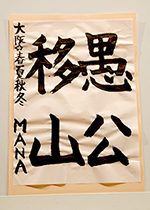 愚公
移山
大阪☆春夏秋冬
MANA